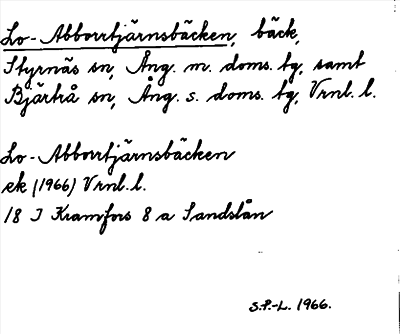 Lo-Abborrtjärnsbäcken, bäck,
Styrnäs sn, Ång. m. doms. tg, samt
Bjärtrå sn, Ång. s. doms. tg, Vrnl. l.
Lo-Abborrtjärnsbäcken
ek (1966) Vrnl. l.
18 I Kramfors 8 a Sandslån
S.P.-L. 1966.